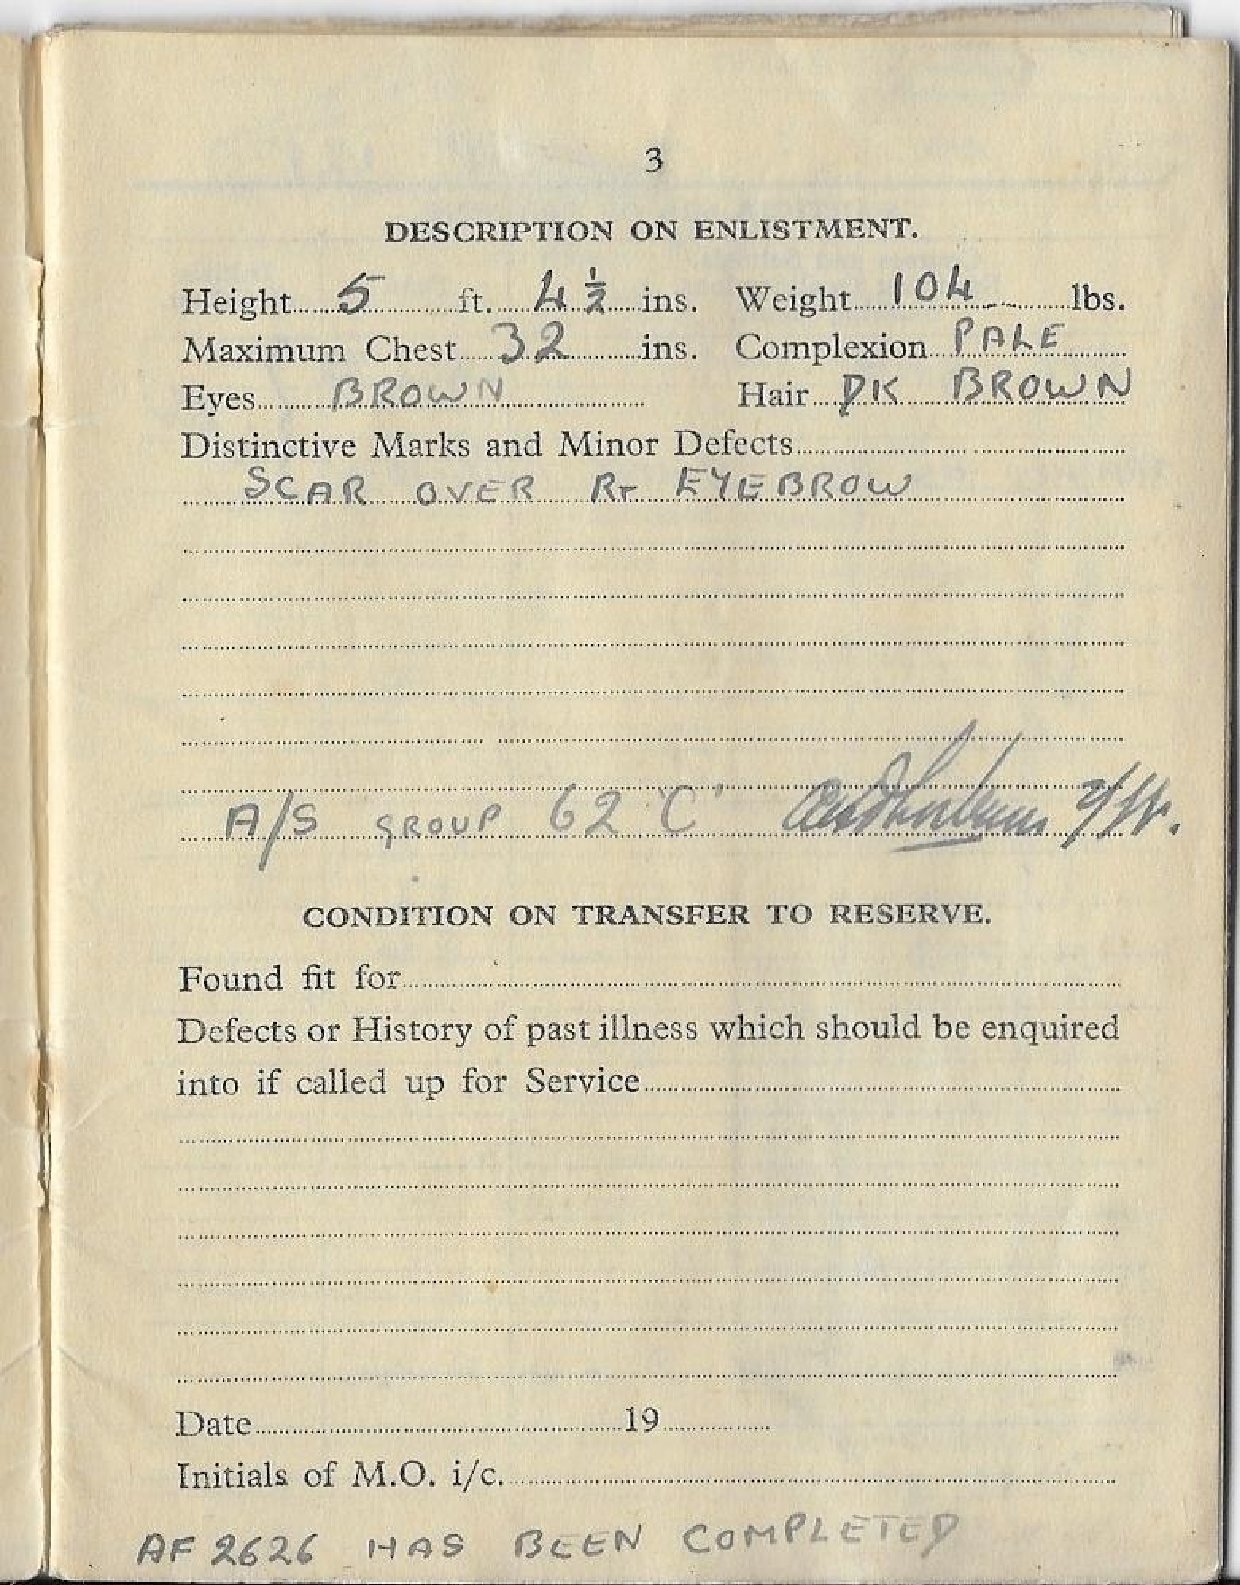 3
DESCRIPTION ON ENLISTMENT.
Height 5 ft. 4 ½ ins. Weight 104 lbs.
Maximum Chest 32 ins. Complexion PALE
Eyes BROWN Hair DK BROWN
Distinctive Marks and Minor Defects
SCAR OVER RT EYEBROW
A/S GROUP 62 'C'
CONDITION ON TRANSFER TO RESERVE.
Found fit for
Defects or History of past illness which should be enquired
into if called up for Service
Date 19
Initials of M.O. i/c.
AF 2626 HAS BEEN COMPLETED